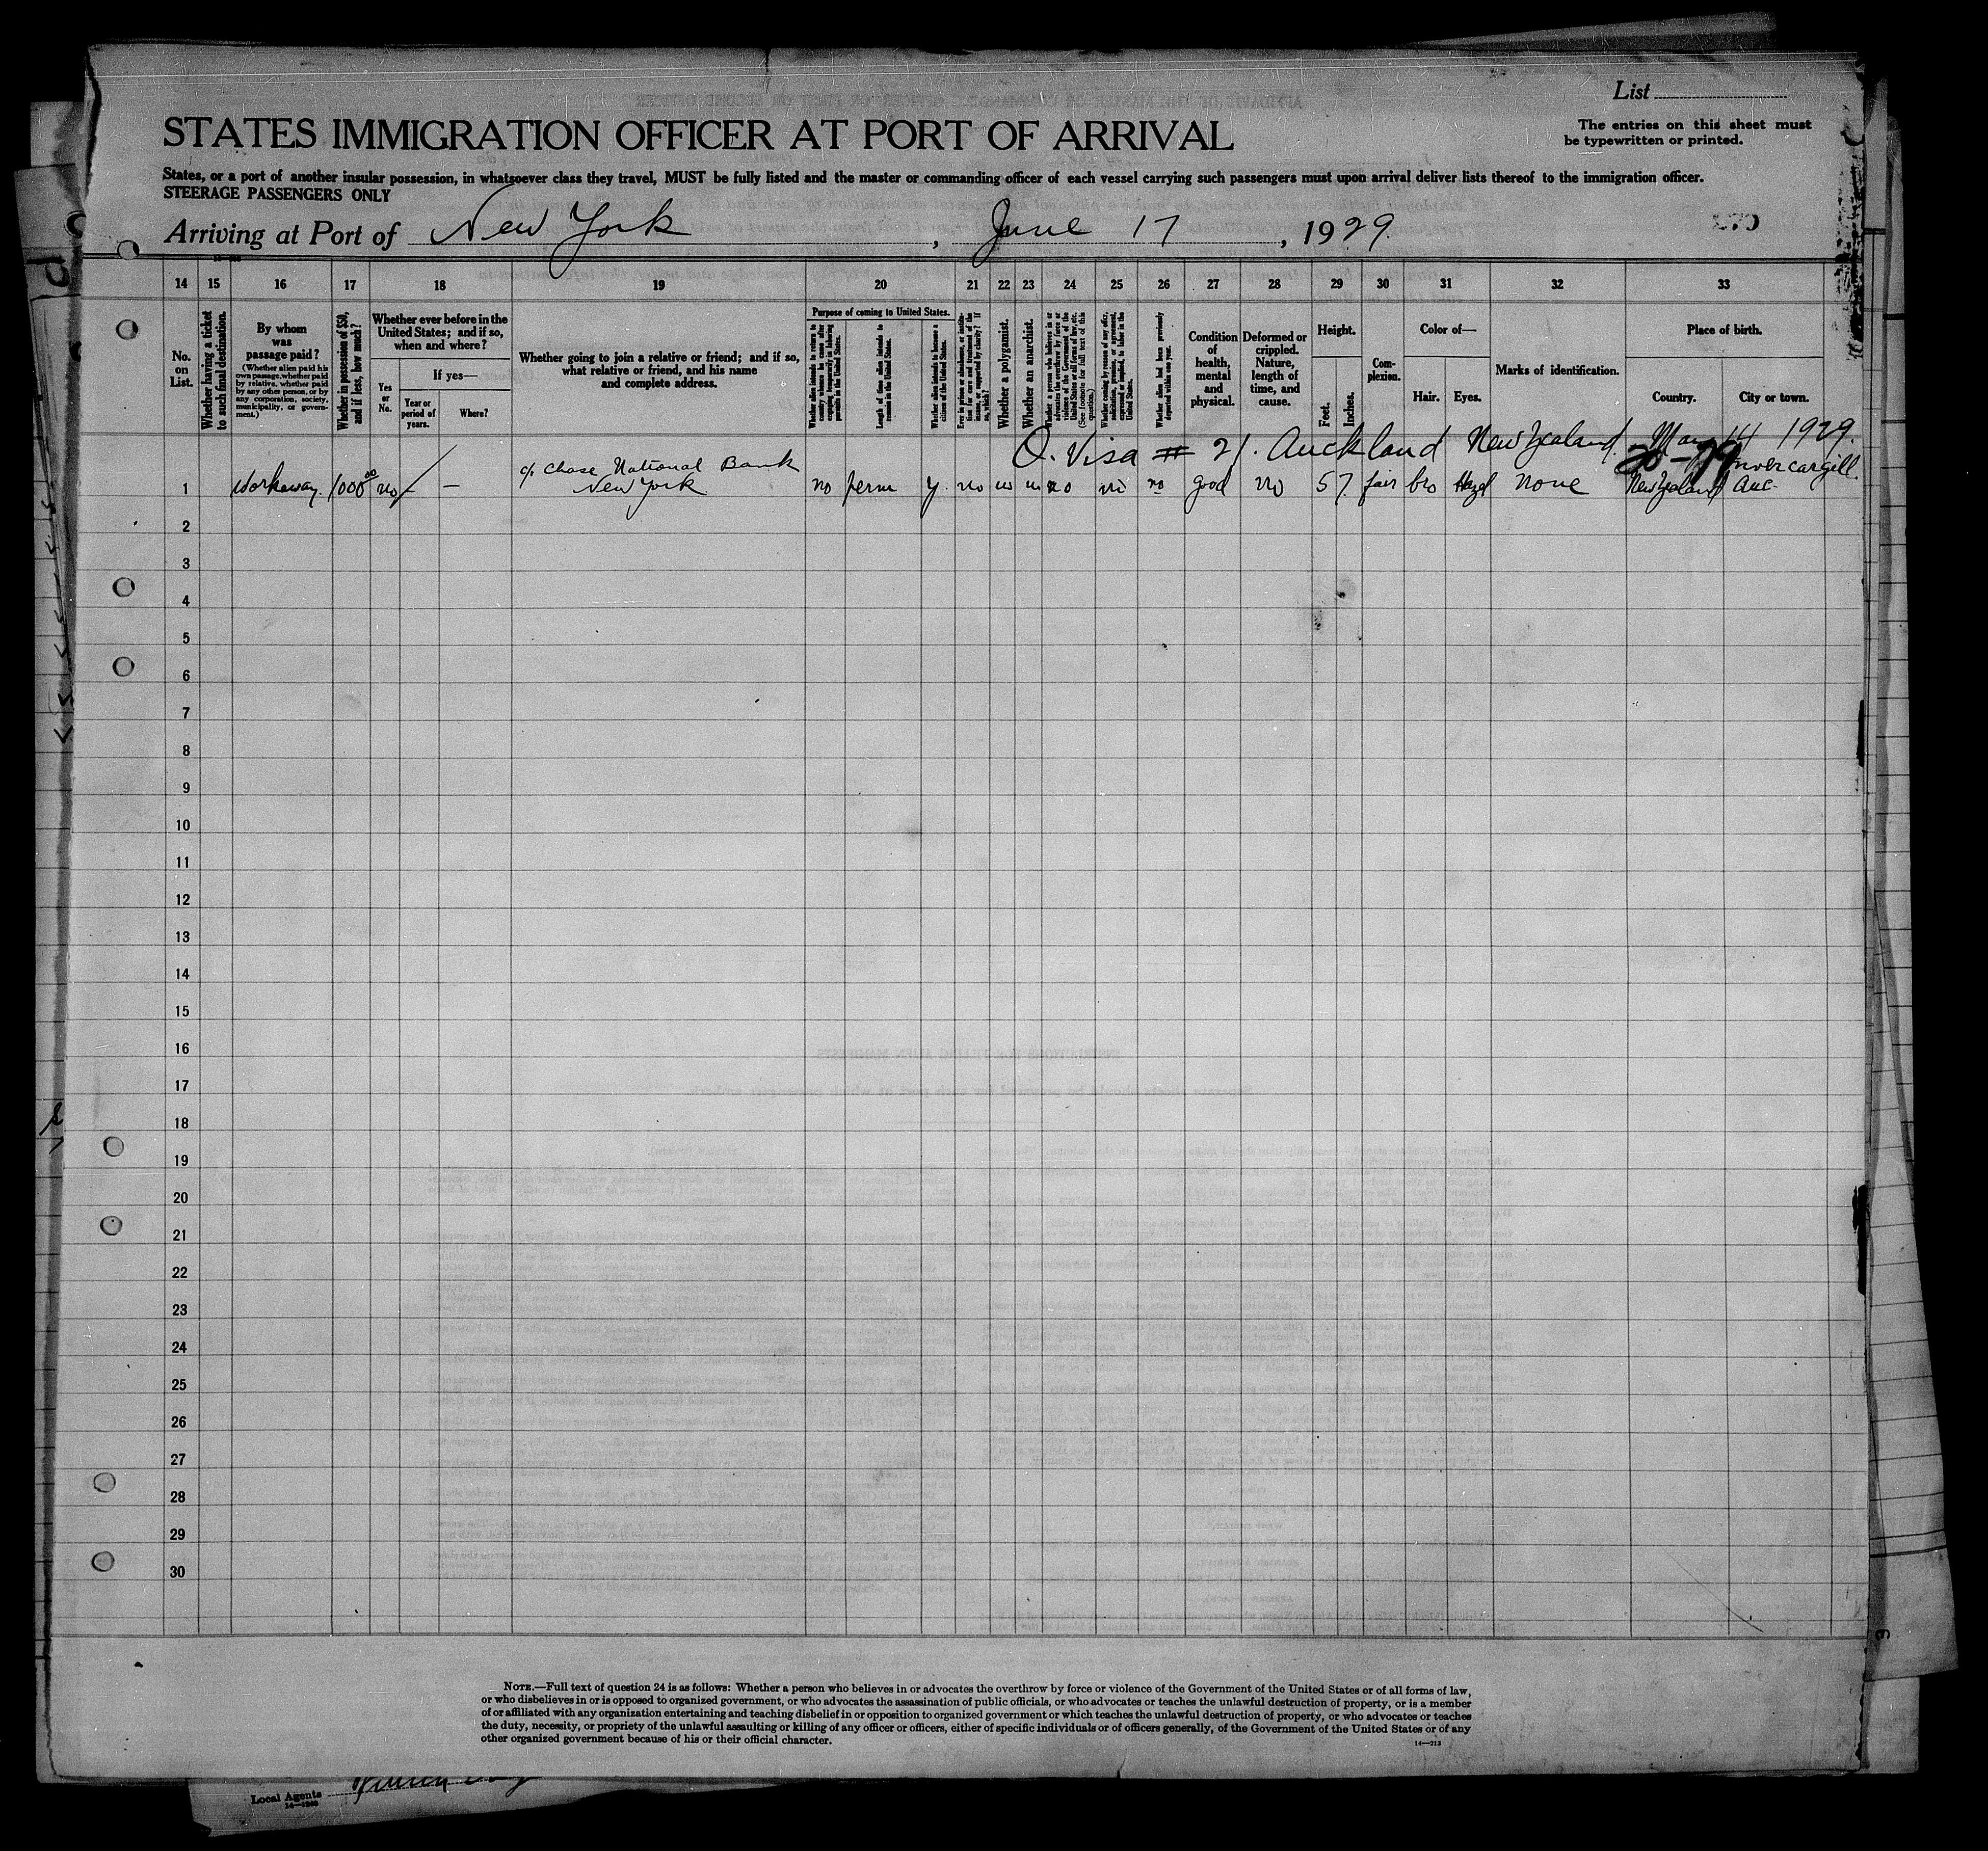 List
STATES IMMIGRATION OFFICER AT PORT OF ARRIVAL
The entries on this sheet must
be typewritten or printed.
States, or a port of another insular possession, in whatsoever class they travel, MUST be fully listed and the master or commanding officer of each vessel carrying such passengers must upon arrival deliver lists thereof to the immigration officer.
STEERAGE PASSENGERS ONLY
Arriving at Port of New York, June 17, 1929
14 15 16 17 18 19 20 21 22 23 24 25 26 27 28 29 30 31 32 33
No. on List.
Whether having a ticket to such final destination.
By whom was passage paid?
(Whether alien paid his own passage, whether paid by relative, whether paid by any other person, or by any corporation, society, municipality, or government.)
Whether in possession of $50, and if less, how much?
Whether ever before in the United States; and if so, when and where?
Yes or No.
If yes—
Year or period of years.
Where?
Whether going to join a relative or friend; and if so, what relative or friend, and his name and complete address.
Purpose of coming to United States.
Whether alien intends to return to country whence he came after engaging temporarily in laboring pursuits in the United States.
Length of time alien intends to remain in the United States.
Whether alien intends to become a citizen of the United States.
Ever in prison or almshouse, or institution for care and treatment of the insane, or supported by charity? If so, which?
Whether a polygamist.
Whether an anarchist.
Whether a person who believes in or advocates the overthrow by force or violence of the Government of the United States or all forms of law, etc. (See footnote for full text of this question.)
Whether coming by reason of any offer, solicitation, promise, or agreement, expressed or implied, to labor in the United States.
Whether alien had been previously deported within one year.
Condition of health, mental and physical.
Deformed or crippled. Nature, length of time, and cause.
Height.
Feet. Inches.
Complexion.
Color of—
Hair. Eyes.
Marks of identification.
Place of birth.
Country. City or town.
Q. Visa # 21. Auckland New Zealand. May 14 1929.
c/o Chase National Bank Invercargill
1 Workaway. 1000 00 no — — New York no perm y. no no no no no no good no 5 7 fair bro Hazel None New Zealand Auc.
2
3
4
5
6
7
8
9
10
11
12
13
14
15
16
17
18
19
20
21
22
23
24
25
26
27
28
29
30
NOTE.—Full text of question 24 is as follows: Whether a person who believes in or advocates the overthrow by force or violence of the Government of the United States or of all forms of law,
or who disbelieves in or is opposed to organized government, or who advocates the assassination of public officials, or who advocates or teaches the unlawful destruction of property, or is a member
of or affiliated with any organization entertaining and teaching disbelief in or opposition to organized government or which teaches the unlawful destruction of property, or who advocates or teaches
the duty, necessity, or propriety of the unlawful assaulting or killing of any officer or officers, either of specific individuals or of officers generally, of the Government of the United States or of any
other organized government because of his or their official character.
14—213
Local Agents